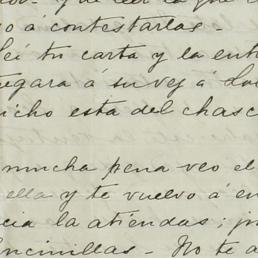 y de leer lo que
o á contestarlas.-
Leí tu carta y la ent
egara á su vez á Lo
icho esta del chasc
mucha pena veo el
ella y te vuelvo á en
cia la atiendas; p
ncinillas - No te a